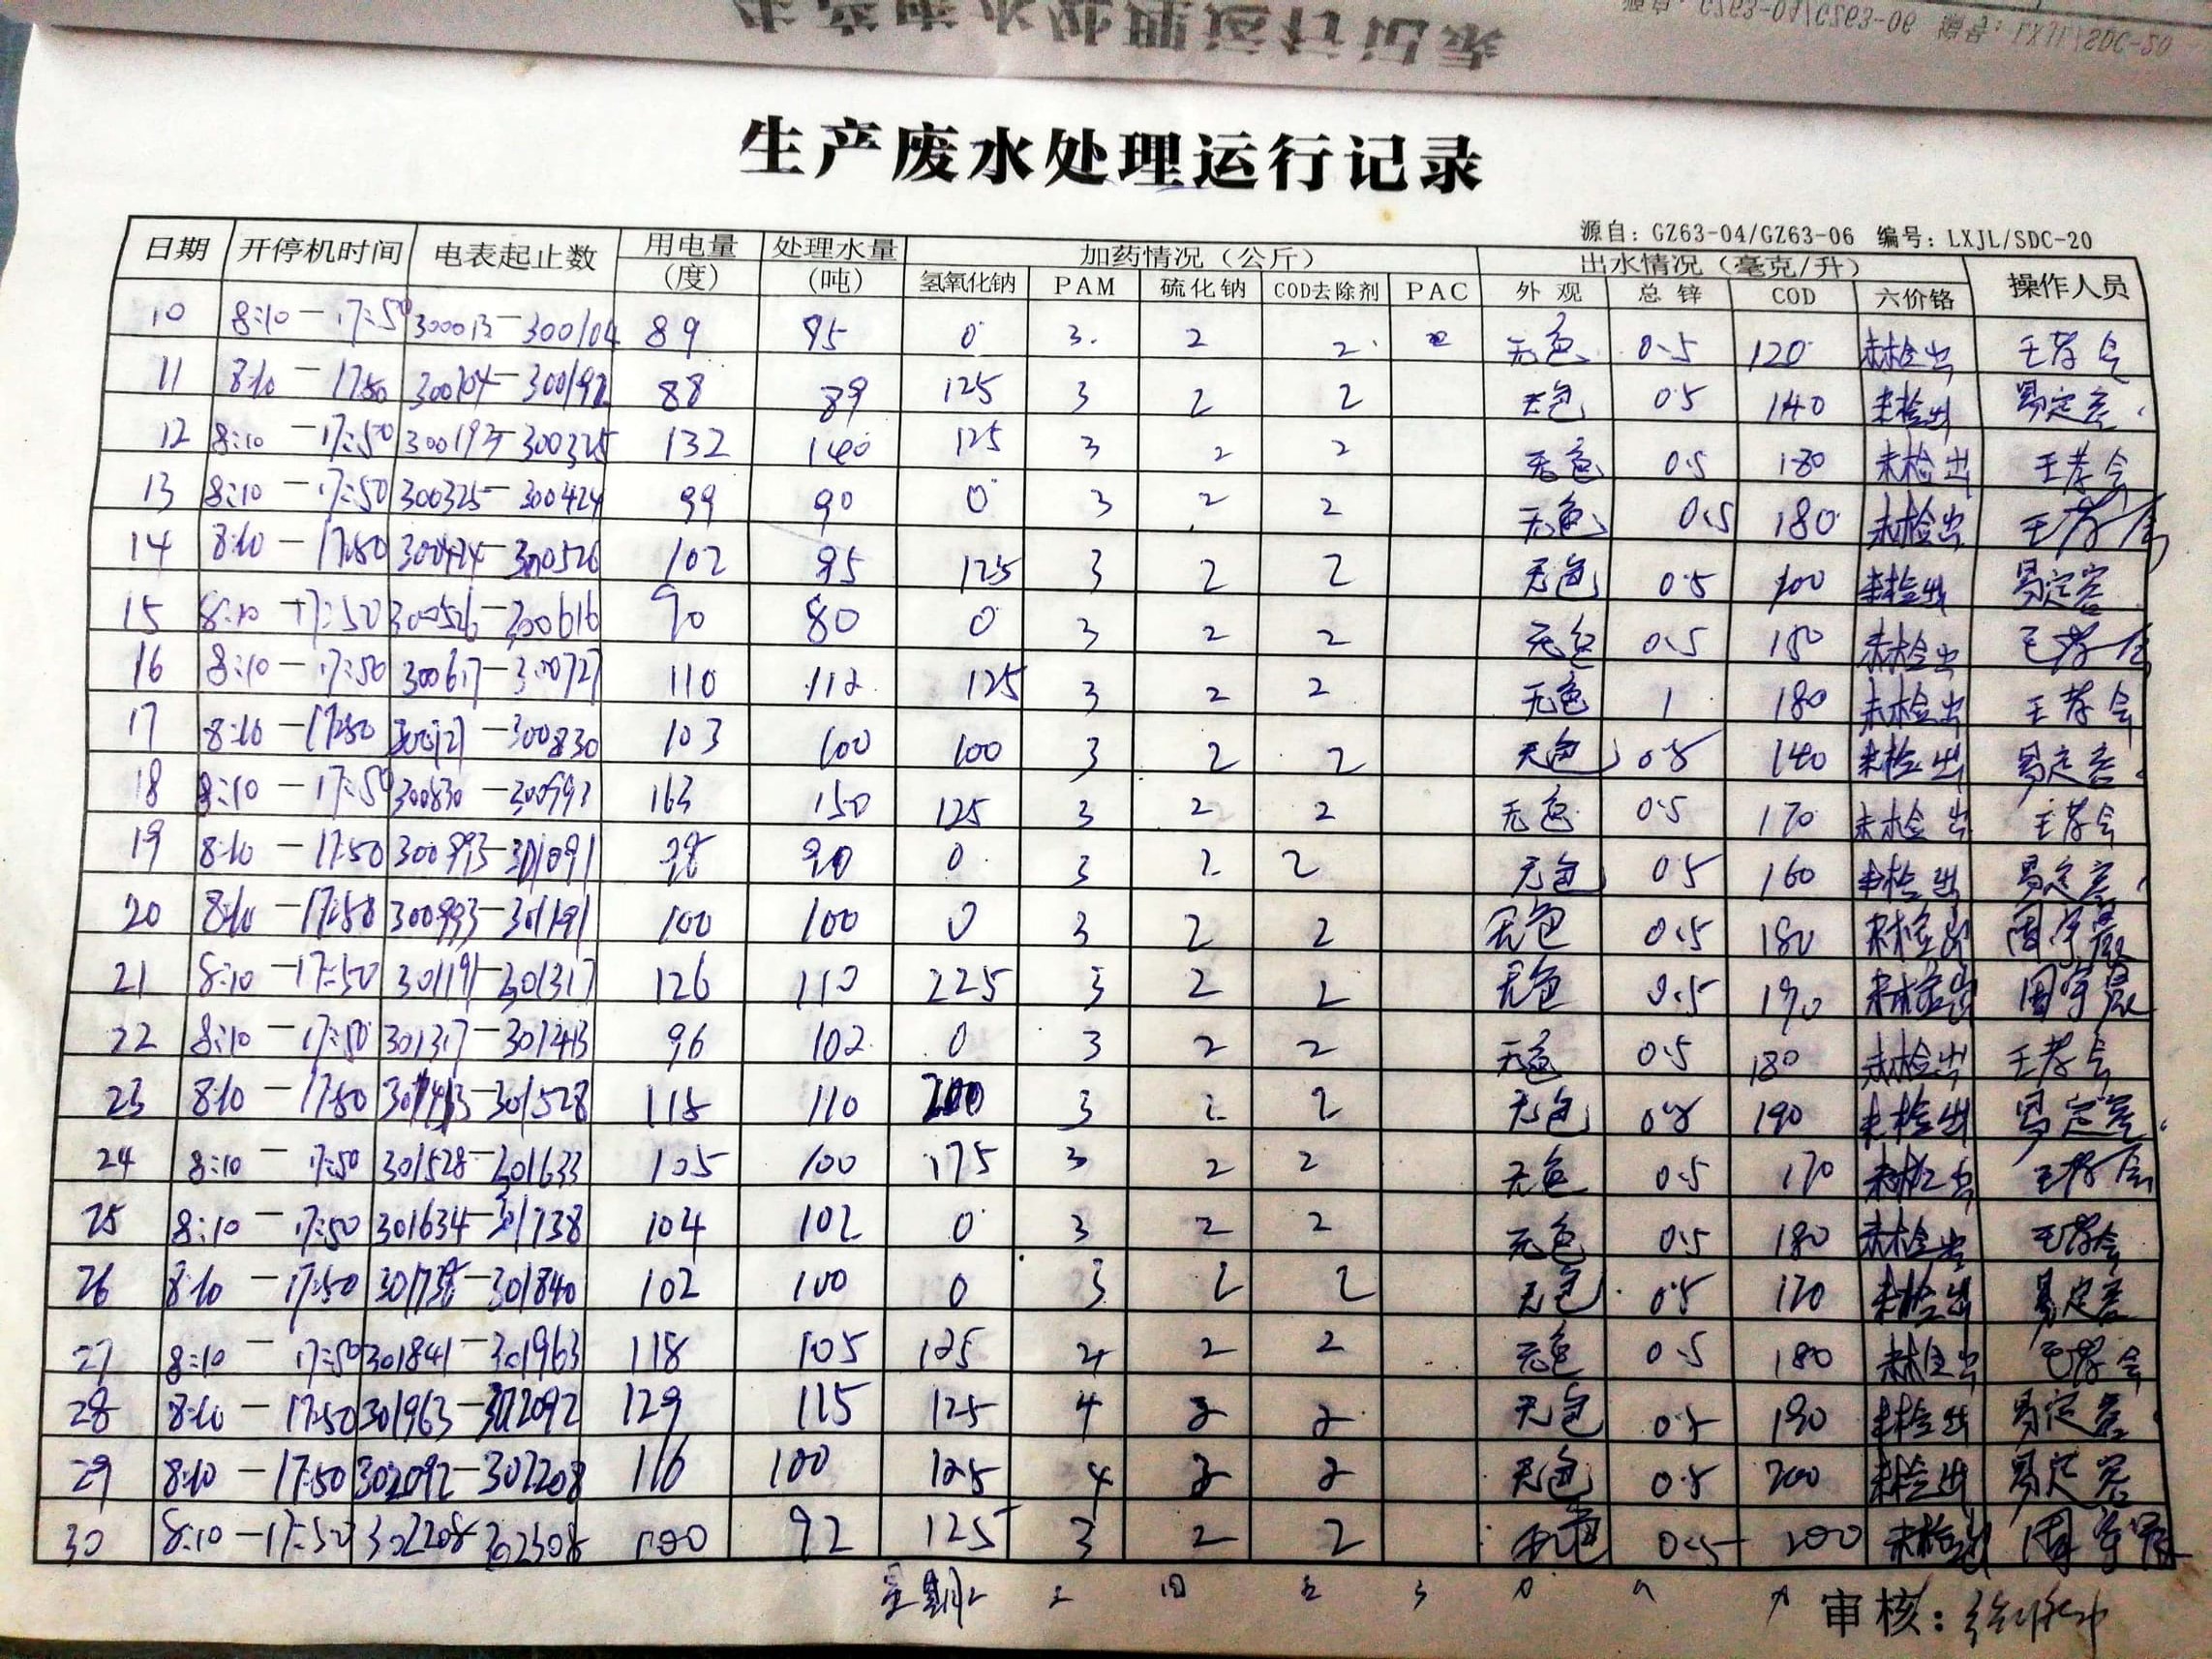 生产废水处理运行记录
源自：GZ63-04/GZ63-06 编号：LXJL/SDC-20
日期 开停机时间 电表起止数 用电量(度) 处理水量(吨) 加药情况（公斤） 出水情况（毫克/升） 操作人员
氢氧化钠 PAM 硫化钠 COD去除剂 PAC 外观 总锌 COD 六价铬
10 8:10-17:50 300013-300104 89 95 0 3 2 2 无色 0.5 120 未检出 王孝会
11 8:10-17:50 300104-300192 88 89 125 3 2 2 无色 0.5 140 未检出 易定容
12 8:10-17:50 300193-300325 132 140 125 3 2 2 无色 0.5 180 未检出 王孝会
13 8:10-17:50 300325-300424 99 90 0 3 2 2 无色 0.5 180 未检出 王孝会
14 8:10-17:50 300424-300526 102 95 125 3 2 2 无色 0.5 未检出 易定容
15 8:10-17:50 300526-300616 90 80 0 3 2 2 无色 0.5 180 未检出 王孝会
16 8:10-17:50 300617-300727 110 112 125 3 2 2 无色 1 180 未检出 王孝会
17 8:10-17:50 300727-300830 103 100 100 3 2 2 无色 0.5 140 未检出 易定容
18 8:10-17:50 300830-300993 163 150 125 3 2 2 无色 0.5 170 未检出 王孝会
19 8:10-17:50 300993-301091 98 90 0 3 2 2 无色 0.5 160 未检出 易定容
20 8:10-17:50 300993-301191 100 100 0 3 2 2 无色 0.5 180 未检出 周宇晨
21 8:10-17:50 301191-301317 126 110 225 3 2 2 无色 0.5 190 未检出 周宇晨
22 8:10-17:50 301317-301413 96 102 0 3 2 2 无色 0.5 180 未检出 王孝会
23 8:10-17:50 301413-301528 115 110 200 3 2 2 无色 0.5 190 未检出 易定容
24 8:10-17:50 301528-301633 105 100 175 3 2 2 无色 0.5 170 未检出 王孝会
25 8:10-17:50 301634-301738 104 102 0 3 2 2 无色 0.5 180 未检出 王孝会
26 8:10-17:50 301738-301840 102 100 0 3 2 2 无色 0.5 170 未检出 易定容
27 8:10-17:50 301841-301963 118 105 125 4 2 2 无色 0.5 180 未检出 王孝会
28 8:10-17:50 301963-302092 129 115 125 4 2 2 无色 0.5 190 未检出 易定容
29 8:10-17:50 302092-302208 116 100 125 4 2 2 无色 0.5 200 未检出 易定容
30 8:10-17:50 302208-302308 100 92 125 3 2 2 无色 0.5 200 未检出 周宇晨
星期二 三 四 五
审核：